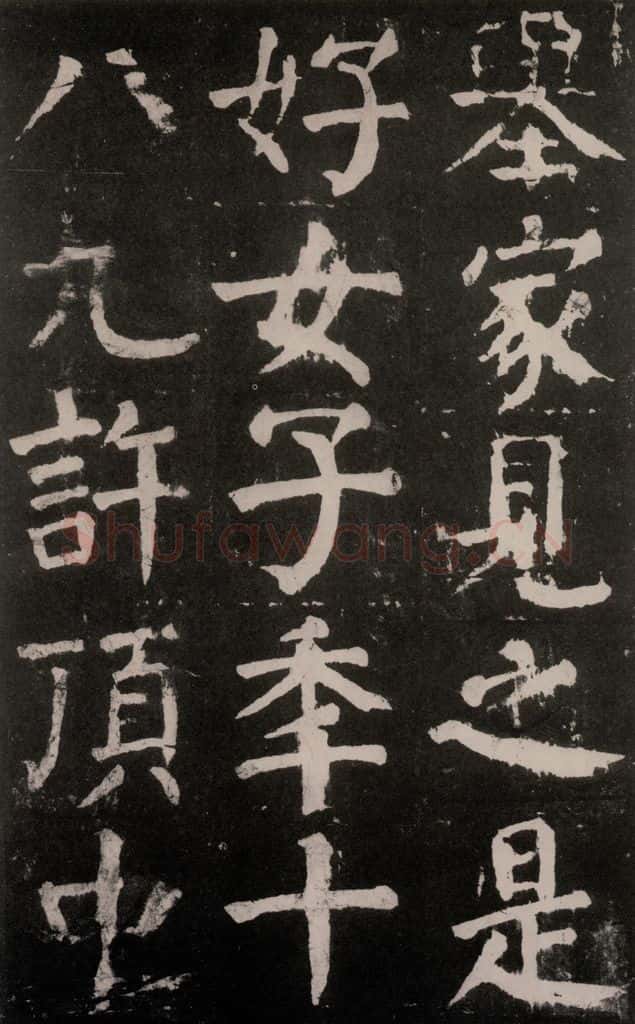 舉家見之是
好女子秊十
八九許頂中
Shufawang.CN